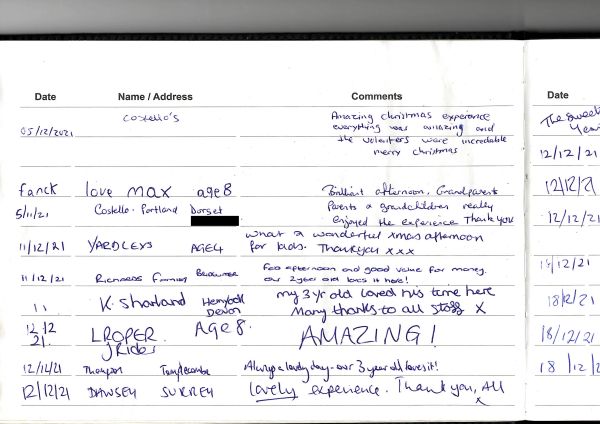 Date Name / Address Comments
05/12/2021 Costello's Amazing christmas experience
everything was amazing and
the volenters were incredable
merry christmas
Fanck love max age 8 Brilliant afternoon, Grandparents
5/11/21 Costello - Portland Dorset Parents & grandchildren really
enjoyed the experience Thank you
11/12/21 YARDLEYS AGE 4 what a wonderful xmas afternoon
for kids. Thankyou x x x
11/12/21 Richards Family afternoon and good value for money.
our 2 year old loves it here!
11 K. Sharland Hemyock
Devon my 3 yr old loved his time here
Many thanks to all staff X
12/12
21. L ROPER Age 8. AMAZING!
J Rides
12/12/21 Thompson Always a lovely day - our 3 year old loves it!
12/12/21 DAWSEY SURREY lovely experience. Thank you, All
x
Date
The Sweet
12/12/21
12/12/21
12/12/21
18/12/21
18/12/21
18/12/21
18/12/2